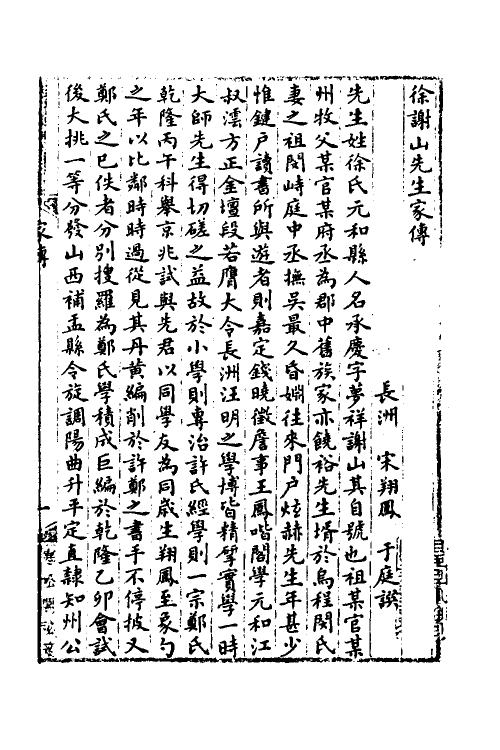 徐謝山先生家傳
長洲 宋翔鳳 于庭譔
先生姓徐氏元和縣人名承慶字夢祥謝山其自號也祖某官某
州牧父某官某府丞為郡中舊族家亦饒裕先生壻於烏程閔氏
妻之祖閔峙庭中丞撫吳最久昏婣往來門戶炫赫先生年甚少
惟鍵戶讀書所與遊者則嘉定錢曉徵詹事王鳳喈閣學元和江
叔澐方正金壇段若膺大令長洲汪明之學博皆精揅實學一時
大師先生得切磋之益故於小學則專治許氏經學則一宗鄭氏
乾隆丙午科舉京兆試與先君以同學友為同歲生翔鳳至象勺
之年以比鄰時時過從見其丹黃編削於許鄭之書手不停披又
鄭氏之已佚者分別搜羅為鄭氏學積成巨編於乾隆乙卯會試
後大挑一等分發山西補盂縣令旋調陽曲升平定直隸知州公
家傳
一